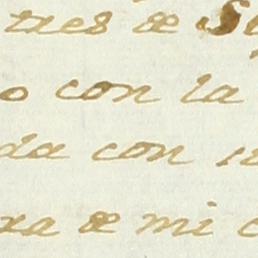 tres de
o con la
da con
xa de mi